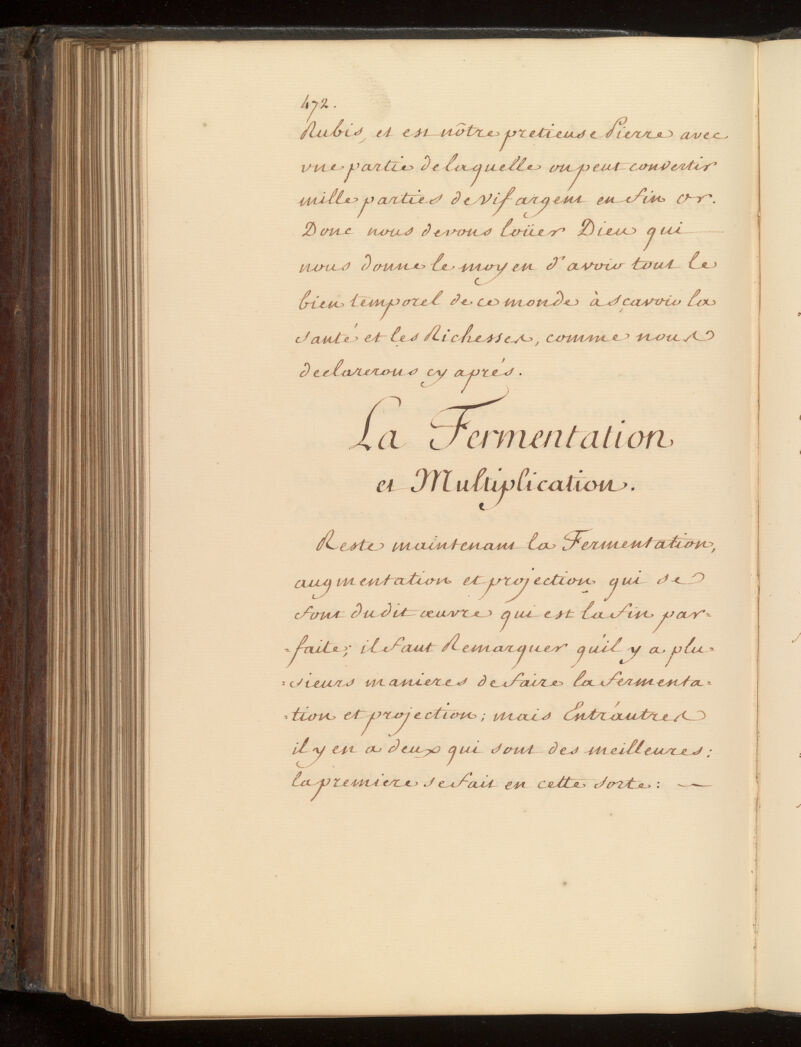 472.
Rubis, et est nôtre pretieuse Pierre avec
vne partie de laquelle on peut convertir
mille parties de vif argent en fin or.
Donc nous devons loüer Dieu qui
nous donne le moyen d'avoir tout le
bien temporel de ce monde à sçavoir la
santé et les Richesses, comme nous
declarerons cy aprés.
La Fermentation
et Multiplication.
Reste maintenant la Fermentation,
augmentation et projection qui se
font dudit œuvre qui est la fin par-
-faite; il faut Remarquer qu'il y a plu-
-sieurs manieres de faire la fermenta-
-tion et projection; mais Entr'autres
il y en a deux qui sont des meilleures;
la premiere se fait en cette sorte: —